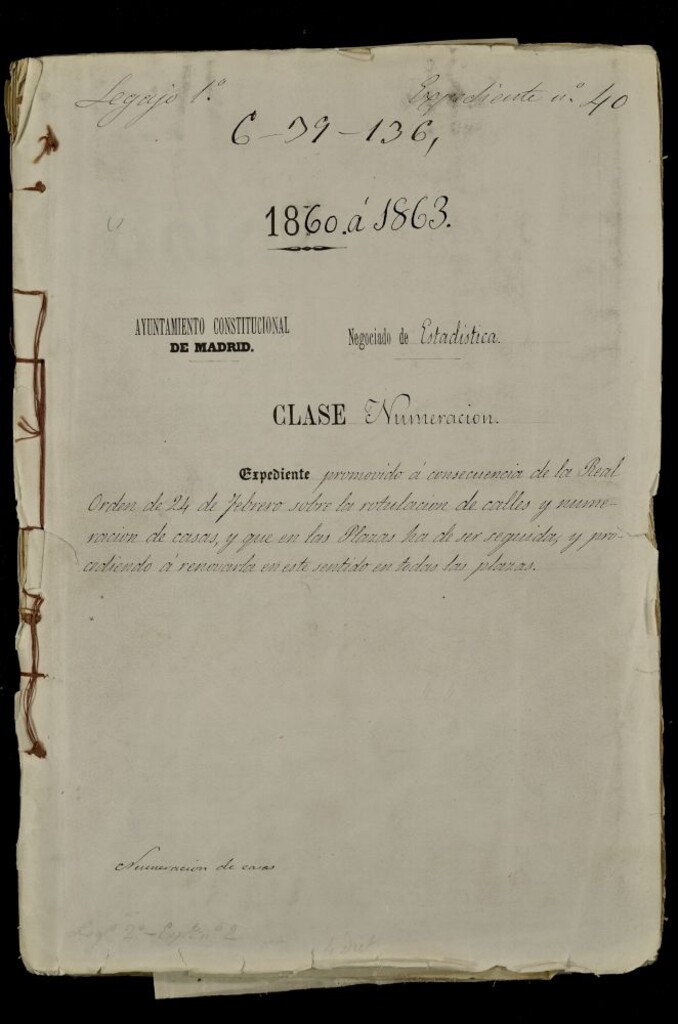 Legajo 1.º
Expediente n.º 40
6-79-136,
1860. á 1863.
AYUNTAMIENTO CONSTITUCIONAL
DE MADRID.
Negociado de Estadística.
CLASE Numeracion.
Expediente promovido á consecuencia de la Real
Orden de 24 de febrero sobre la rotulacion de calles y nume-
racion de casas, y que en las Plazas ha de ser seguida, y pro-
cediendo á renovarla en este sentido en todas las plazas.
Numeracion de casas
Leg.º 2º - Exp.te nº 2